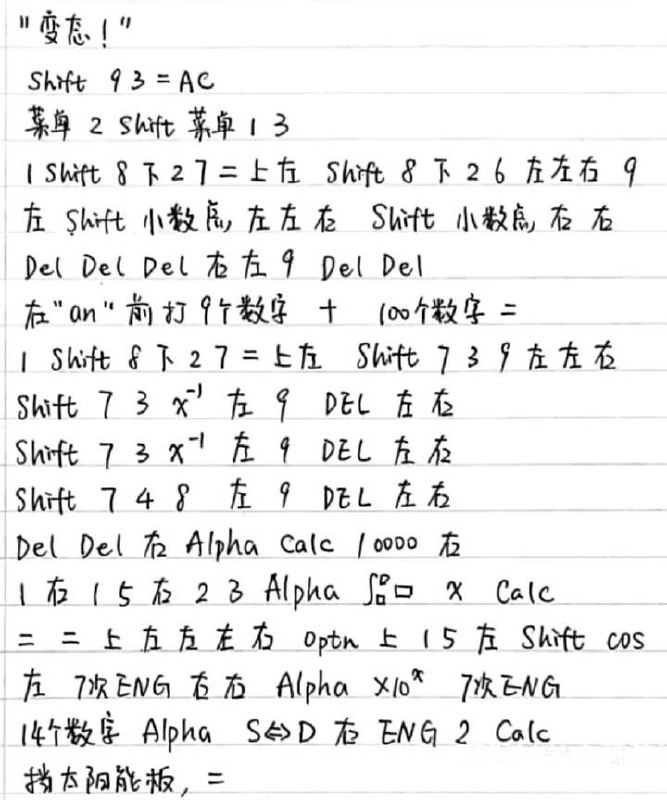 "变态！"
Shift 9 3 = AC
菜单 2 Shift 菜单 1 3
1 Shift 8 下 2 7 = 上左 Shift 8 下 2 6 左左右 9
左 Shift 小数点, 左左右 Shift 小数点, 右右
Del Del Del 右左 9 Del Del
在"an"前打 9个数字 + 100个数字 =
1 Shift 8 下 2 7 = 上左 Shift 7 3 9 左左右
Shift 7 3 x⁻¹ 左 9 DEL 左右
Shift 7 3 x⁻¹ 左 9 DEL 左右
Shift 7 4 8 左 9 DEL 左右
Del Del 右 Alpha Calc 10000 右
1 右 1 5 右 2 3 Alpha ∫□ x Calc
= = 上左左左右 optn 上 1 5 左 Shift cos
左 7次ENG 右右 Alpha ×10ˣ 7次ENG
14个数字 Alpha S⇔D 右 ENG 2 Calc
挡太阳能板, =